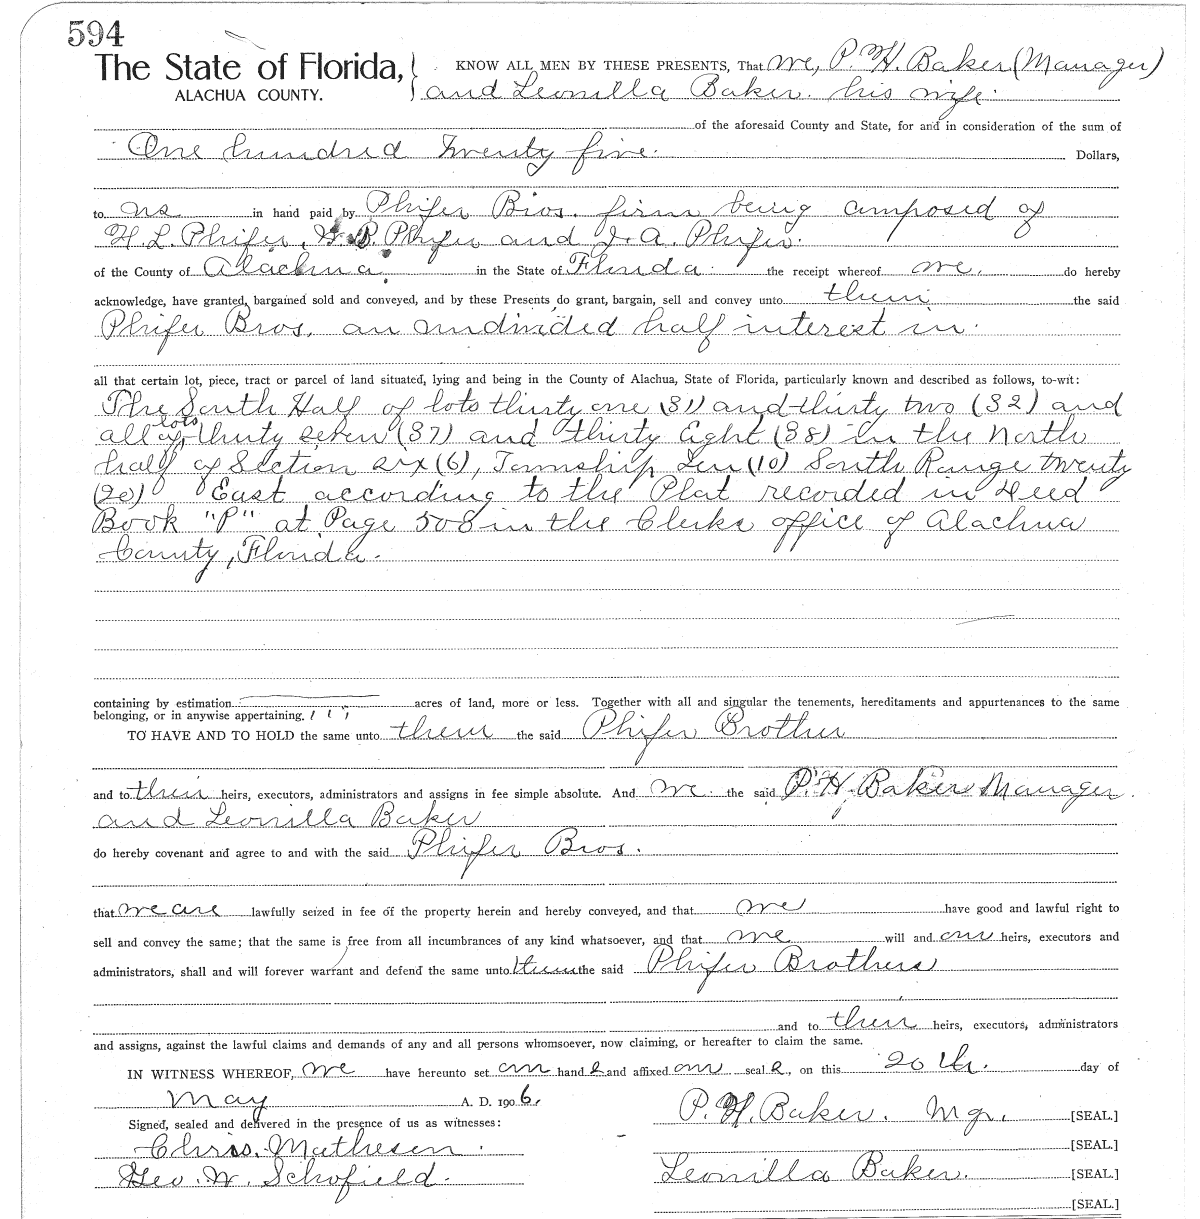 594
The State of Florida,
ALACHUA COUNTY.
KNOW ALL MEN BY THESE PRESENTS, That We, P. H. Baker (Manager)
and Leonilla Baker his wife
of the aforesaid County and State, for and in consideration of the sum of
One hundred Twenty five Dollars,
to us in hand paid by Phifer Bros. firm being composed of
H. L. Phifer, W. B. Phifer and J. A. Phifer
of the County of Alachua in the State of Florida the receipt whereof we, do hereby
acknowledge, have granted, bargained sold and conveyed, and by these Presents do grant, bargain, sell and convey unto them the said
Phifer Bros. an undivided half interest in
all that certain lot, piece, tract or parcel of land situated, lying and being in the County of Alachua, State of Florida, particularly known and described as follows, to-wit:
The South Half of lots thirty one (31) and thirty two (32) and
all of lots thirty seven (37) and thirty Eight (38) in the North
half of Section six (6), Township Ten (10) South Range twenty
(20) East according to the Plat recorded in Deed
Book "P" at Page 508 in the Clerks office of Alachua
County, Florida.
containing by estimation acres of land, more or less. Together with all and singular the tenements, hereditaments and appurtenances to the same
belonging, or in anywise appertaining.
TO HAVE AND TO HOLD the same unto them the said Phifer Brother
and to their heirs, executors, administrators and assigns in fee simple absolute. And we the said P. H. Baker Manager
and Leonilla Baker
do hereby covenant and agree to and with the said Phifer Bros.
that we are lawfully seized in fee of the property herein and hereby conveyed, and that we have good and lawful right to
sell and convey the same; that the same is free from all incumbrances of any kind whatsoever, and that we will and our heirs, executors and
administrators, shall and will forever warrant and defend the same unto them the said Phifer Brothers
and to their heirs, executors, administrators
and assigns, against the lawful claims and demands of any and all persons whomsoever, now claiming, or hereafter to claim the same.
IN WITNESS WHEREOF, we have hereunto set our hand s and affixed our seal s, on this 20th. day of
May A. D. 1906.
Signed, sealed and delivered in the presence of us as witnesses:
P. H. Baker. Mgr. [SEAL.]
Chris. Matheson [SEAL.]
Geo. W. Schofield. Leonilla Baker. [SEAL.]
[SEAL.]